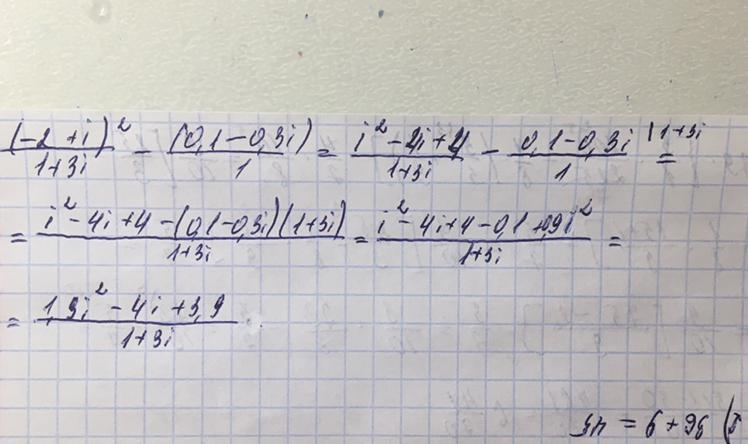 (-2+i)² / 1+3i - (0,1-0,3i) / 1 = i²-4i+4 / 1+3i - 0,1-0,3i / 1 |1+3i =
= i²-4i+4-(0,1-0,3i)(1+3i) / 1+3i = i²-4i+4-0,1+0,9i² / 1+3i =
= 1,9i²-4i+3,9 / 1+3i
36+9=45